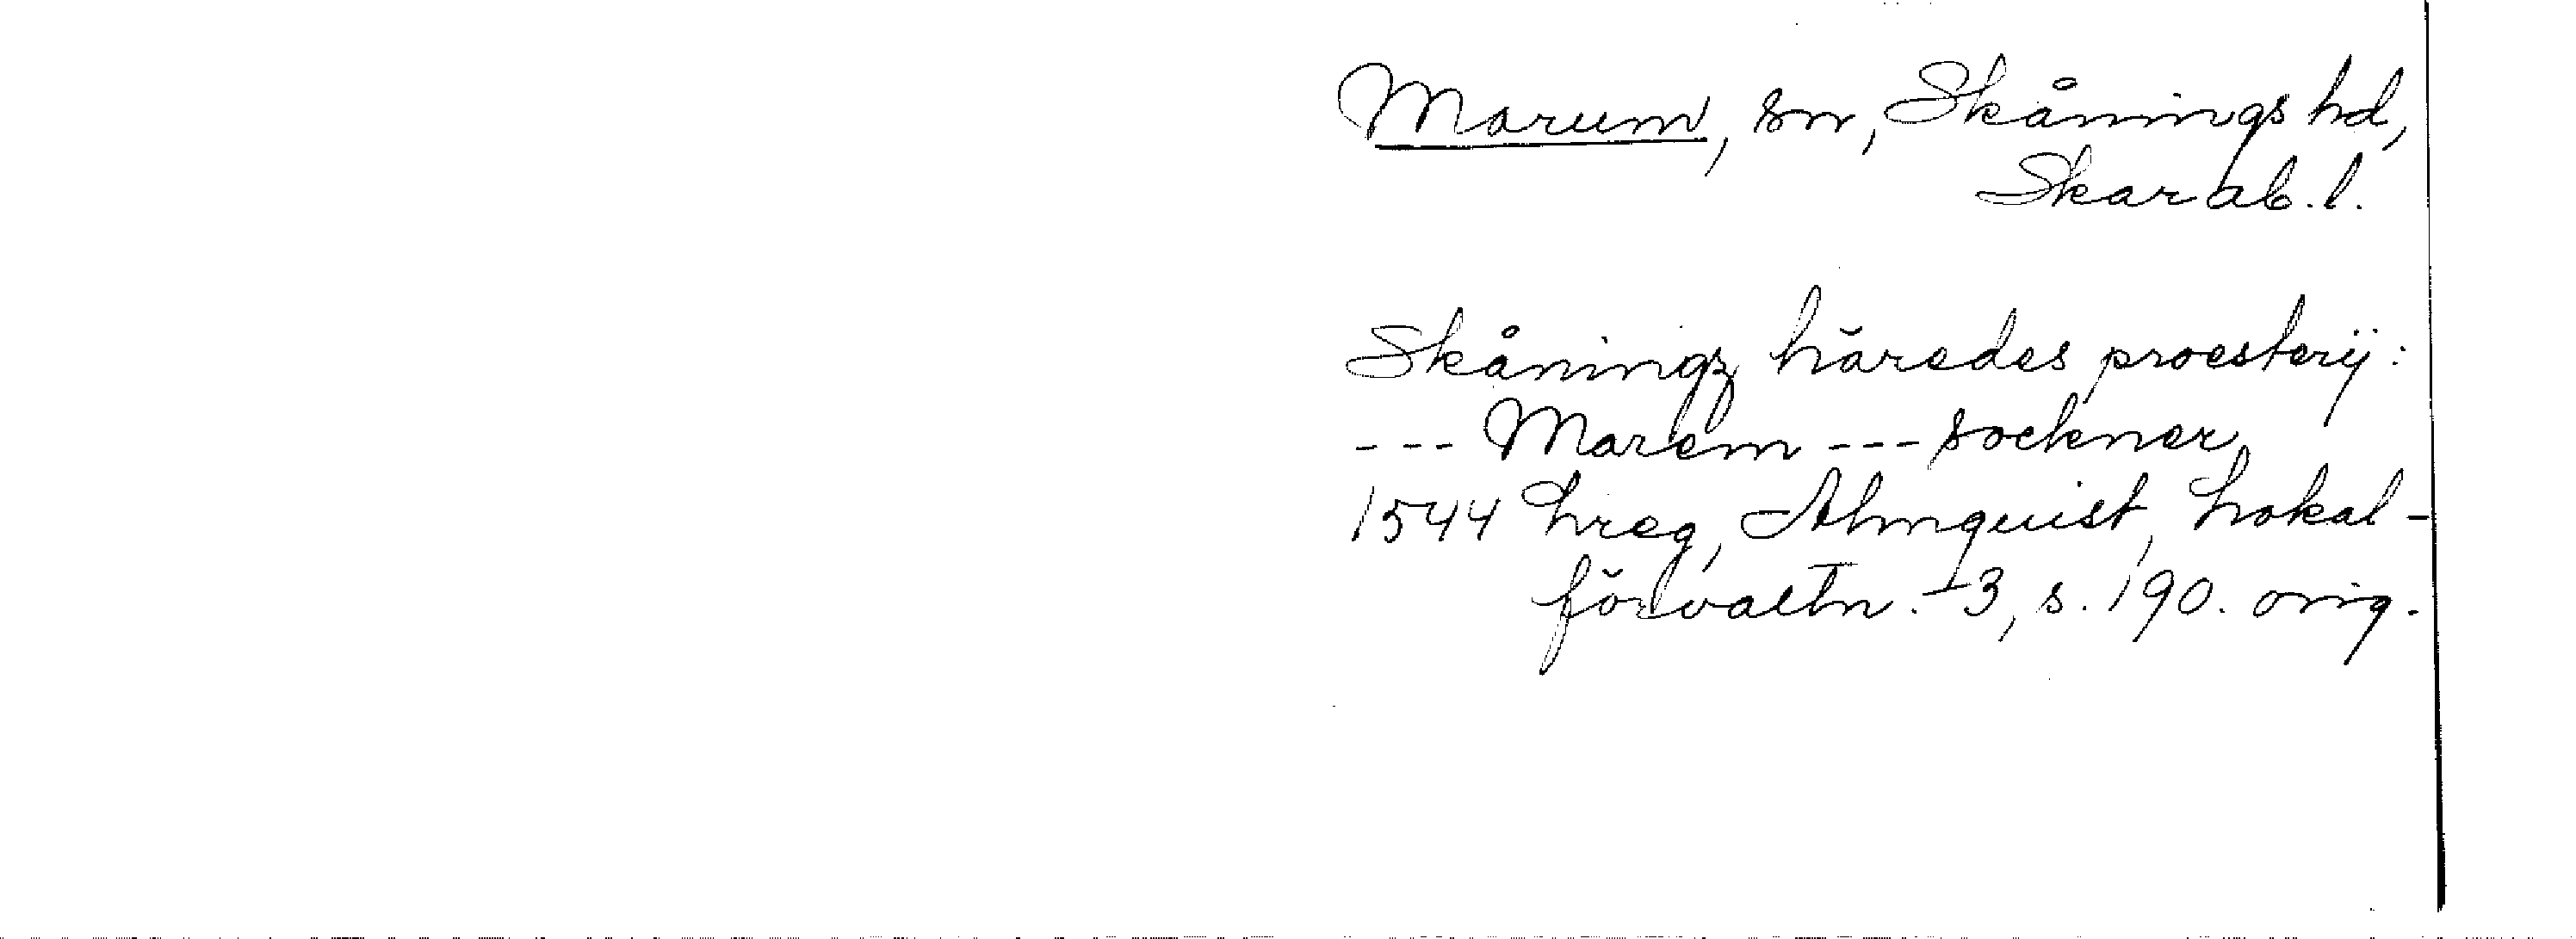 Marum, sn, Skånings hd,
Skarab.l.
Skåningz häredes proesterij:
--- Marem --- sockner
1544 hreg, Almquist, Lokal-
förvaltn. I 3, s. 190. orig.